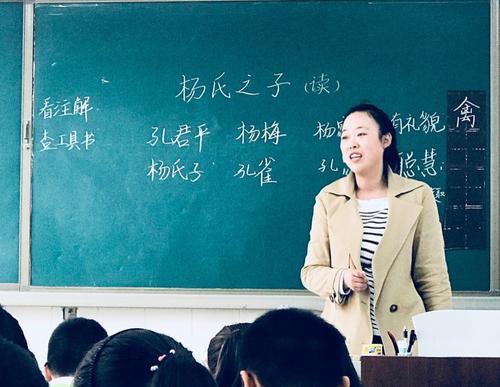 杨氏之子（读）
看注解
查工具书
孔君平 杨梅 杨 有礼貌
杨氏子 孔雀 孔 聪慧
禽